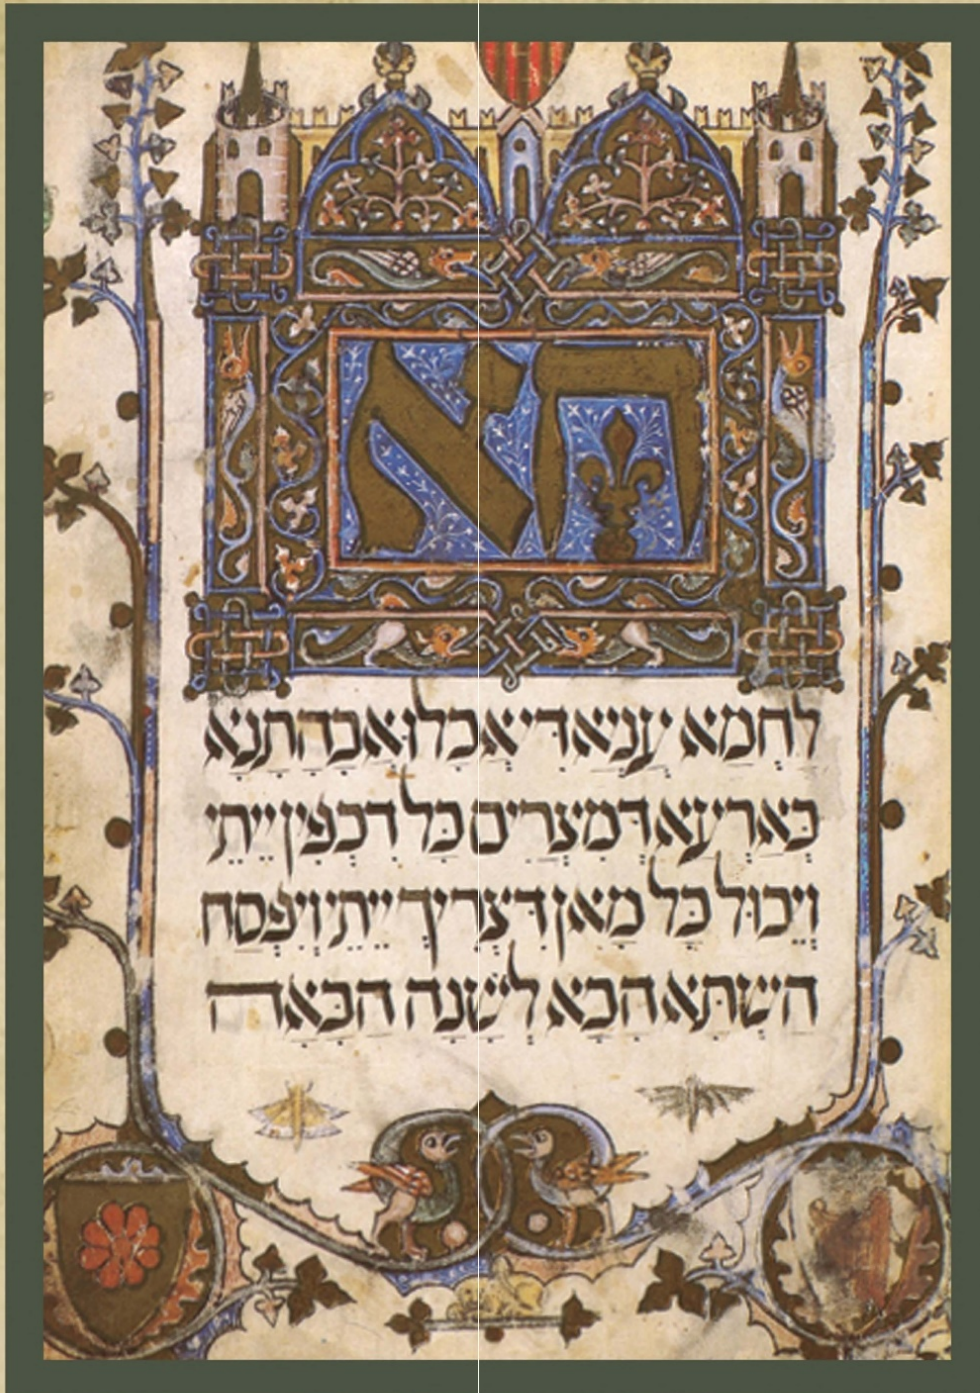 הא
לחמא עניא די אכלו אבהתנא
בארעא דמצרים כל דכפין ייתי
ויכול כל מאן דצריך ייתי ויפסח
השתא הכא לשנה הבאה